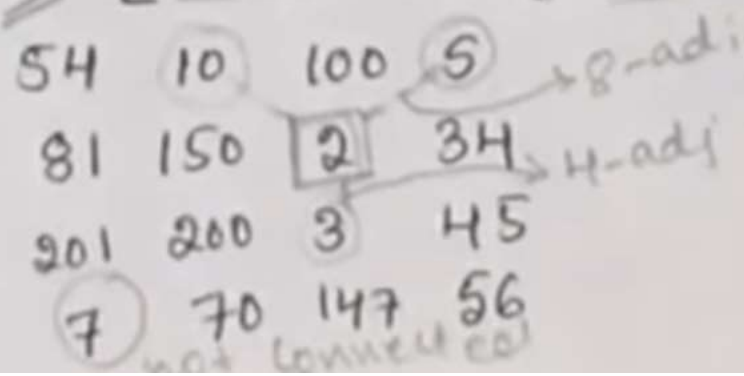 54 10 100 5
8-adj
81 150 2 34
4-adj
201 200 3 45
7 70 147 56
not connected